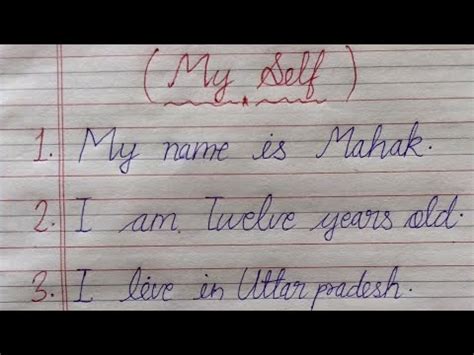 ( My Self )
1. My name is Mahak.
2. I am Twelve years old.
3. I live in Uttar pradesh.